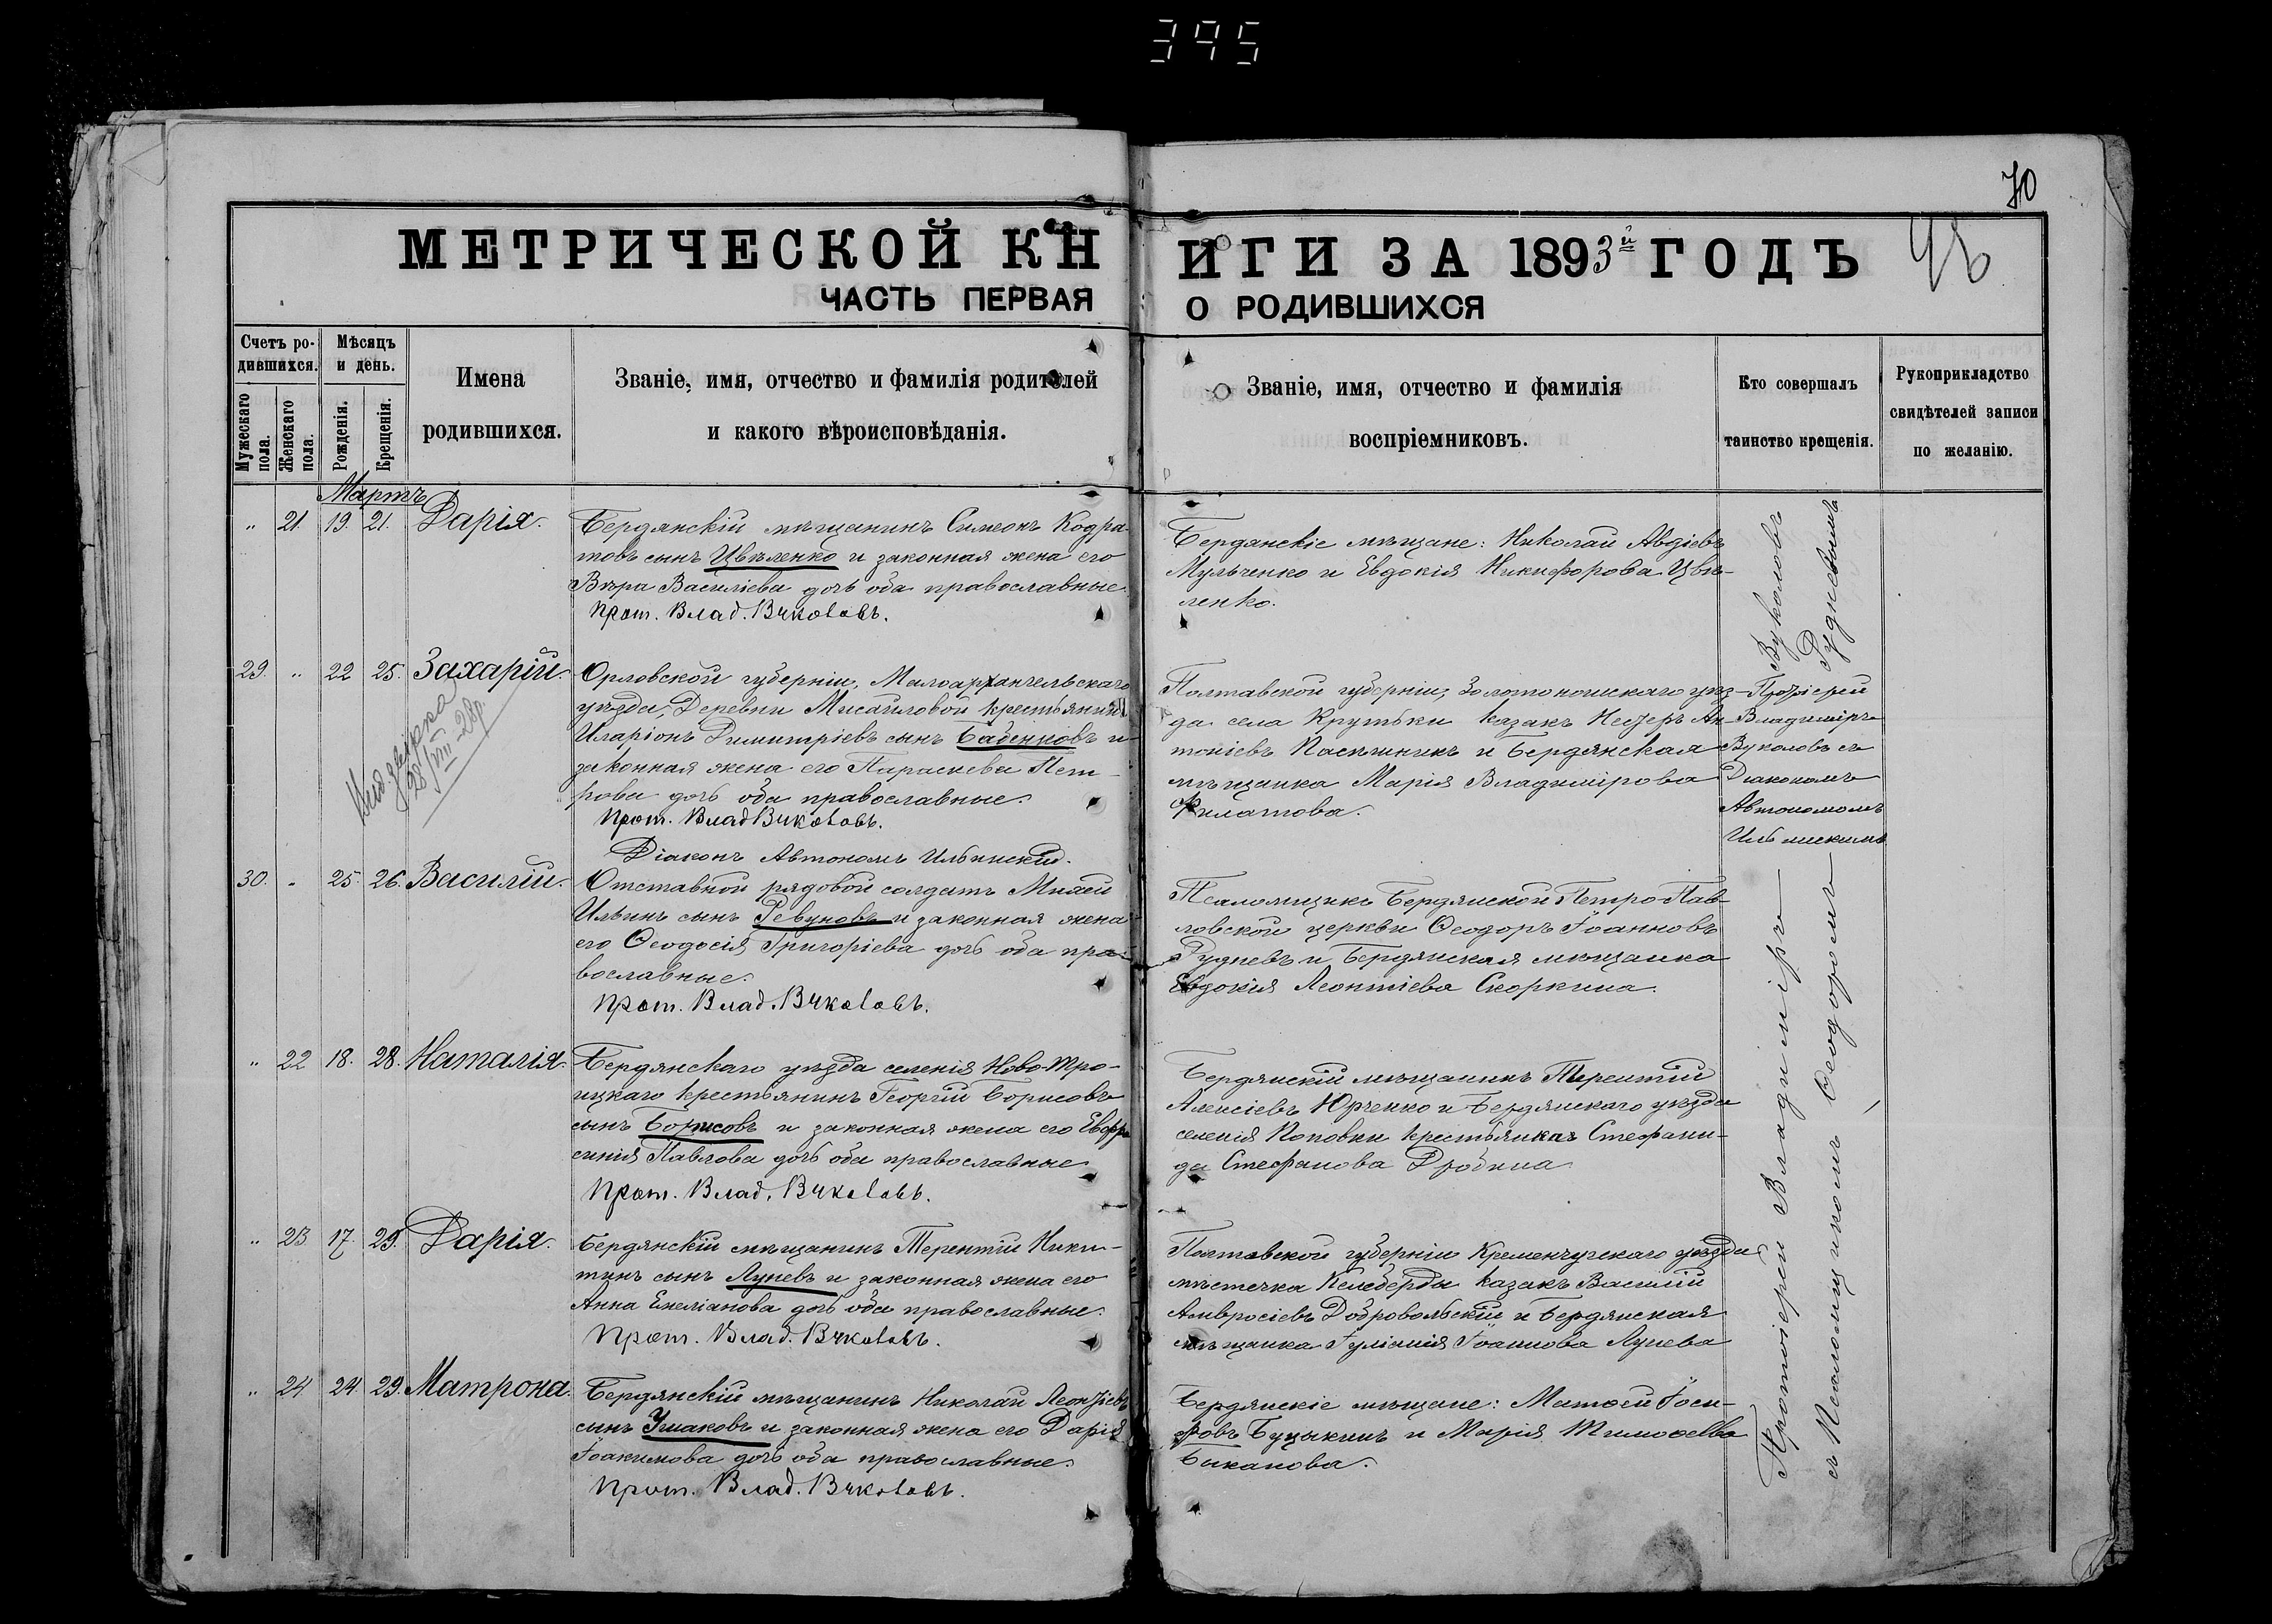 395
70
МЕТРИЧЕСКОЙ КНИГИ ЗА 1893й ГОДЪ
ЧАСТЬ ПЕРВАЯ О РОДИВШИХСЯ
Счетъ ро-
дившихся.
Мужескаго пола.
Женскаго пола.
Мѣсяцъ
и день.
Рожденія.
Крещенія.
Имена
родившихся.
Званіе, имя, отчество и фамилія родителей
и какого вѣроисповѣданія.
Званіе, имя, отчество и фамилія
воспріемниковъ.
Кто совершалъ
таинство крещенія.
Рукоприкладство
свидѣтелей записи
по желанію.
Мартъ
" 21. 19. 21. Дарія.
Бердянскій мѣщанинъ Симеонъ Кодра-
товъ сынъ Цвѣленко и законная жена его
Вѣра Василіева дочь оба православные.
Прот. Влад. Вуколовъ.
Бердянскіе мѣщане: Николай Авдіевъ
Мульченко и Евдокія Никифорова Цвѣ-
ленко.
29. " 22 25. Захарій.
28/VIII-28р.
Орловской губерніи, Малоархангельскаго
уѣзда, Деревни Мисайловой крестьянинъ
Иларіонъ Димитріевъ сынъ Баденковъ и
законная жена его Параскева Пет-
рова дочь оба православные.
Прот. Влад Вуколовъ.
Діаконъ Автономъ Ильинскій.
Полтавской губерніи, Золотоношскаго уѣз-
да села Крутьки казакъ Несторъ Ан-
тоніевъ Пасѣшникъ и Бердянская
мѣщанка Марія Владимірова
Филатова.
Протоіерей
Владиміръ
Вуколовъ съ
Діакономъ
Автономомъ
Ильинскимъ
30. " 25. 26. Василій.
Отставной рядовой солдатъ Михей
Ильинъ сынъ Ревуновъ и законная жена
его Ѳеодосія Григоріева дочь оба пра-
вославные.
Прот. Влад. Вуколовъ.
Псаломщикъ Бердянской Петро-Пав-
ловской церкви Ѳеодоръ Іоанновъ
Рудневъ и Бердянская мѣщанка
Евдокія Леонтіева Скоркина.
" 22 18. 28. Наталія.
Бердянскаго уѣзда селенія Ново-Тро-
ицкаго крестьянинъ Георгій Борисовъ
сынъ Борисовъ и законная жена его Евфро-
синія Павлова дочь оба православные
Прот. Влад. Вуколовъ.
Бердянскій мѣщанинъ Терентій
Алексіевъ Юрченко и Бердянскаго уѣзда
селенія Поповки крестьянка Стефани-
да Стефанова Дробина
" 23. 17. 29. Дарія.
Бердянскій мѣщанинъ Терентій Ники-
тинъ сынъ Луневъ и законная жена его
Анна Емеліанова дочь оба православные.
Прот. Влад. Вуколовъ.
Полтавской губерніи Кременчугскаго уѣзда
мѣстечка Келеберды казакъ Василій
Амвросіевъ Добровольскій и Бердянская
мѣщанка Іуліанія Іоаннова Лунева
" 24 24. 29. Матрона.
Бердянскій мѣщанинъ Николай Леонтіевъ
сынъ Ушаковъ и законная жена его Дарія
Іоакимова дочь оба православные.
Прот. Влад. Вуколовъ.
Бердянскіе мѣщане: Матѳей Іоси-
фовъ Буцыкинъ и Марія Тимоѳеева
Быканова.
Протоіерей Владиміръ Вуколовъ
съ Псаломщикомъ Ѳеодоромъ Рудневымъ